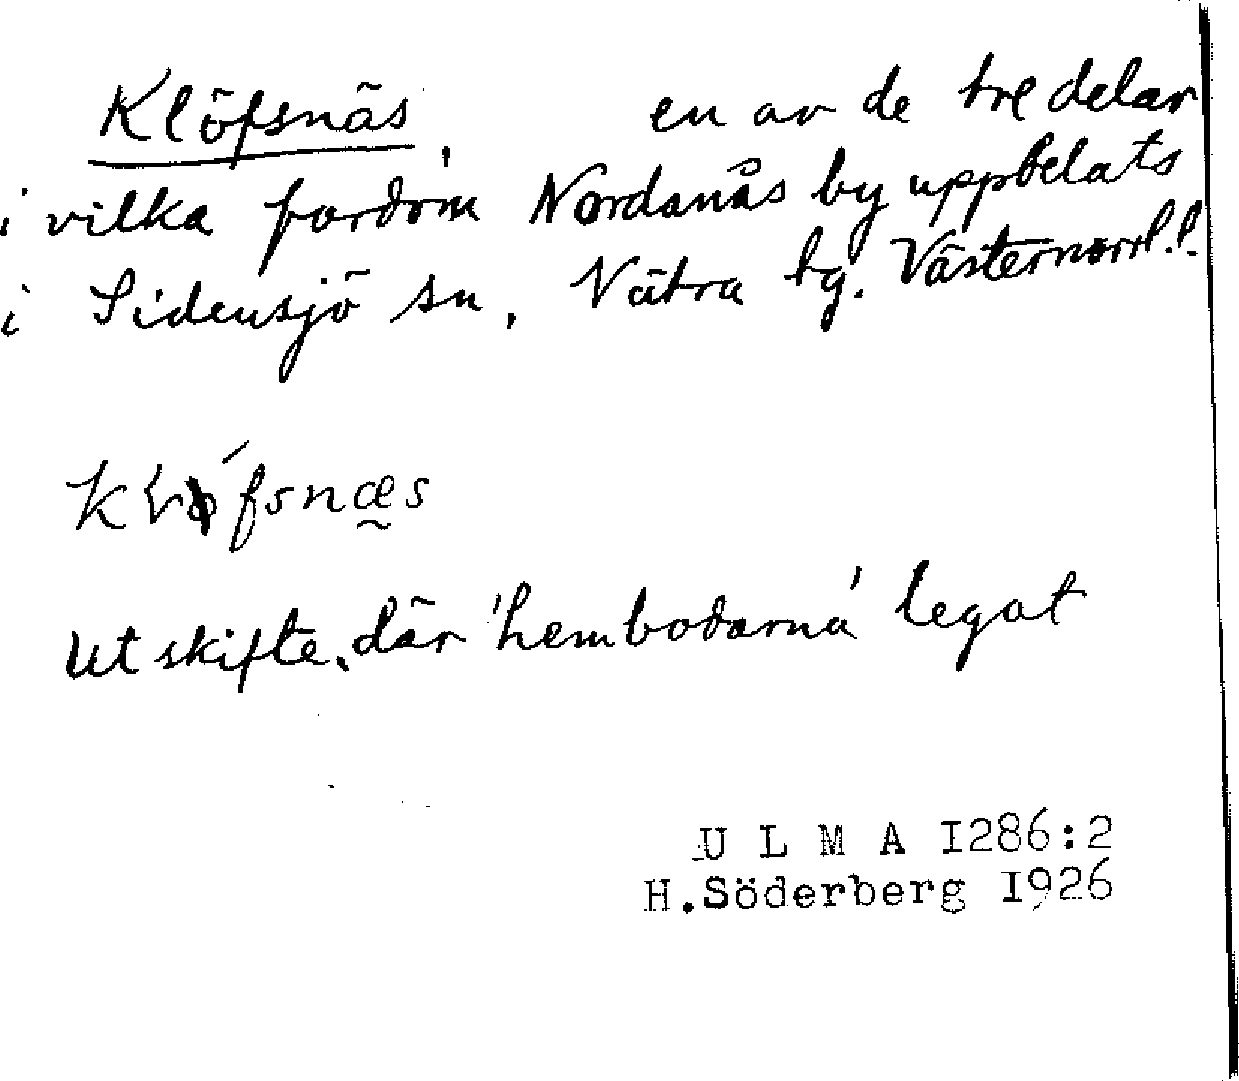 Klöfsnäs, en av de tre delar
i vilka fordom Nordanås by uppdelats
i Sidensjö sn, Nätra tg. Västernorrl.l.
Utskifte, där 'hembodarna' legat
U L M A I286:2
H.Söderberg I926